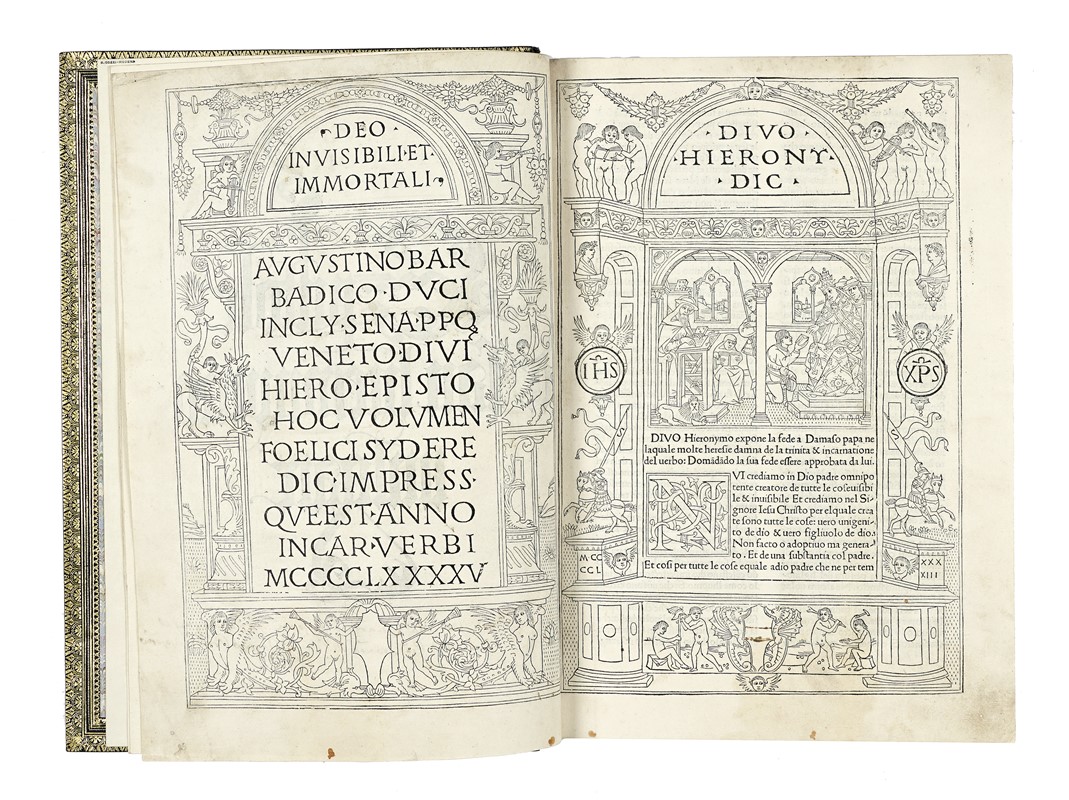 DEO
INVISIBILI·ET·
IMMORTALI
AVGVSTINO BAR
BADICO·DVCI
INCLY·SENA·PPQ
VENETO·DIVI
HIERO·EPISTO
HOC VOLVMEN
FOELICI SYDERE
DIC·IMPRESS·
QVE EST·ANNO
INCAR·VERBI
MCCCCLXXXXV
· DIVO ·
·HIERONY·
· DIC ·
IHS
XPS
DIVO Hieronymo expone la fede a Damaso papa ne
laquale molte heresie damna de la trinita & incarnatione
del uerbo: Domãdãdo la sua fede essere approbata da lui.
N
VI crediamo in Dio padre omnipo
tente creatore de tutte le cose uisibi
le & inuisibile Et crediamo nel Si-
gnore Iesu Christo per el quale crea
te sono tutte le cose: uero unigeni-
to de dio & uero figliuolo de dio.
Non facto o adoptiuo ma genera-
to. Et de una substantia col padre.
Et cosi per tutte le cose equale a dio padre che ne per tem
MCC
CCL
XXX
XIII